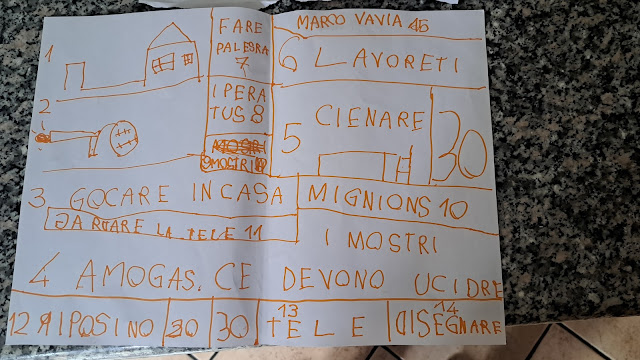 1
2
3 GOCARE IN CASA
GARDARE LA TELE 11
FARE
PALESRA
7
IPERA
TUS 8
MOSTRI 9
MARCO VAVIA 45
6 LAVORETI
5 CIENARE
30
MIGNIONS 10
I MOSTRI
4 AMOGAS. CE DEVONO UCIDRE
12 RIPOSINO 20 30
13
TELE
14
DISEGNARE